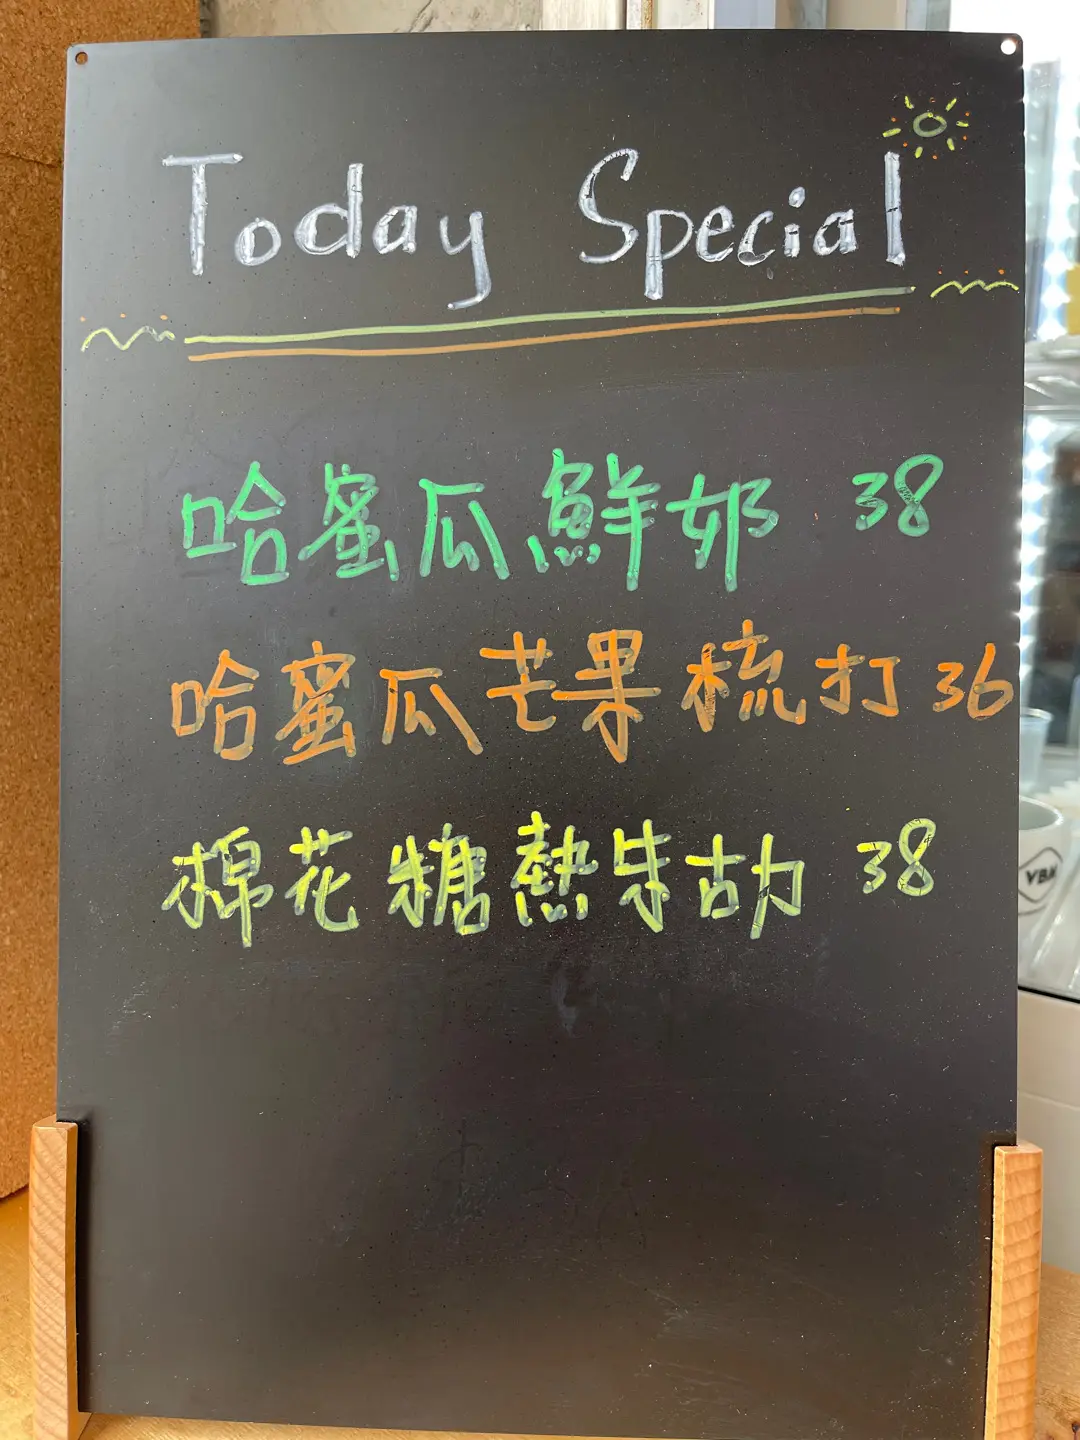 Today Special
哈蜜瓜鮮奶 38
哈蜜瓜芒果梳打 36
棉花糖熱朱古力 38
VBM